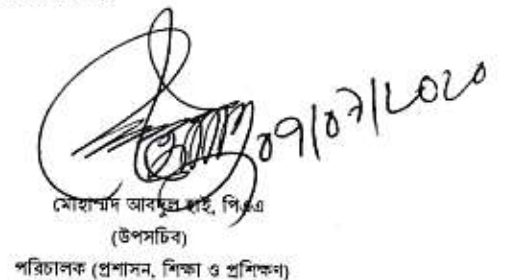 মোহাম্মদ আবদুল হাই, পিএএ
(উপসচিব)
পরিচালক (প্রশাসন, শিক্ষা ও প্রশিক্ষণ)